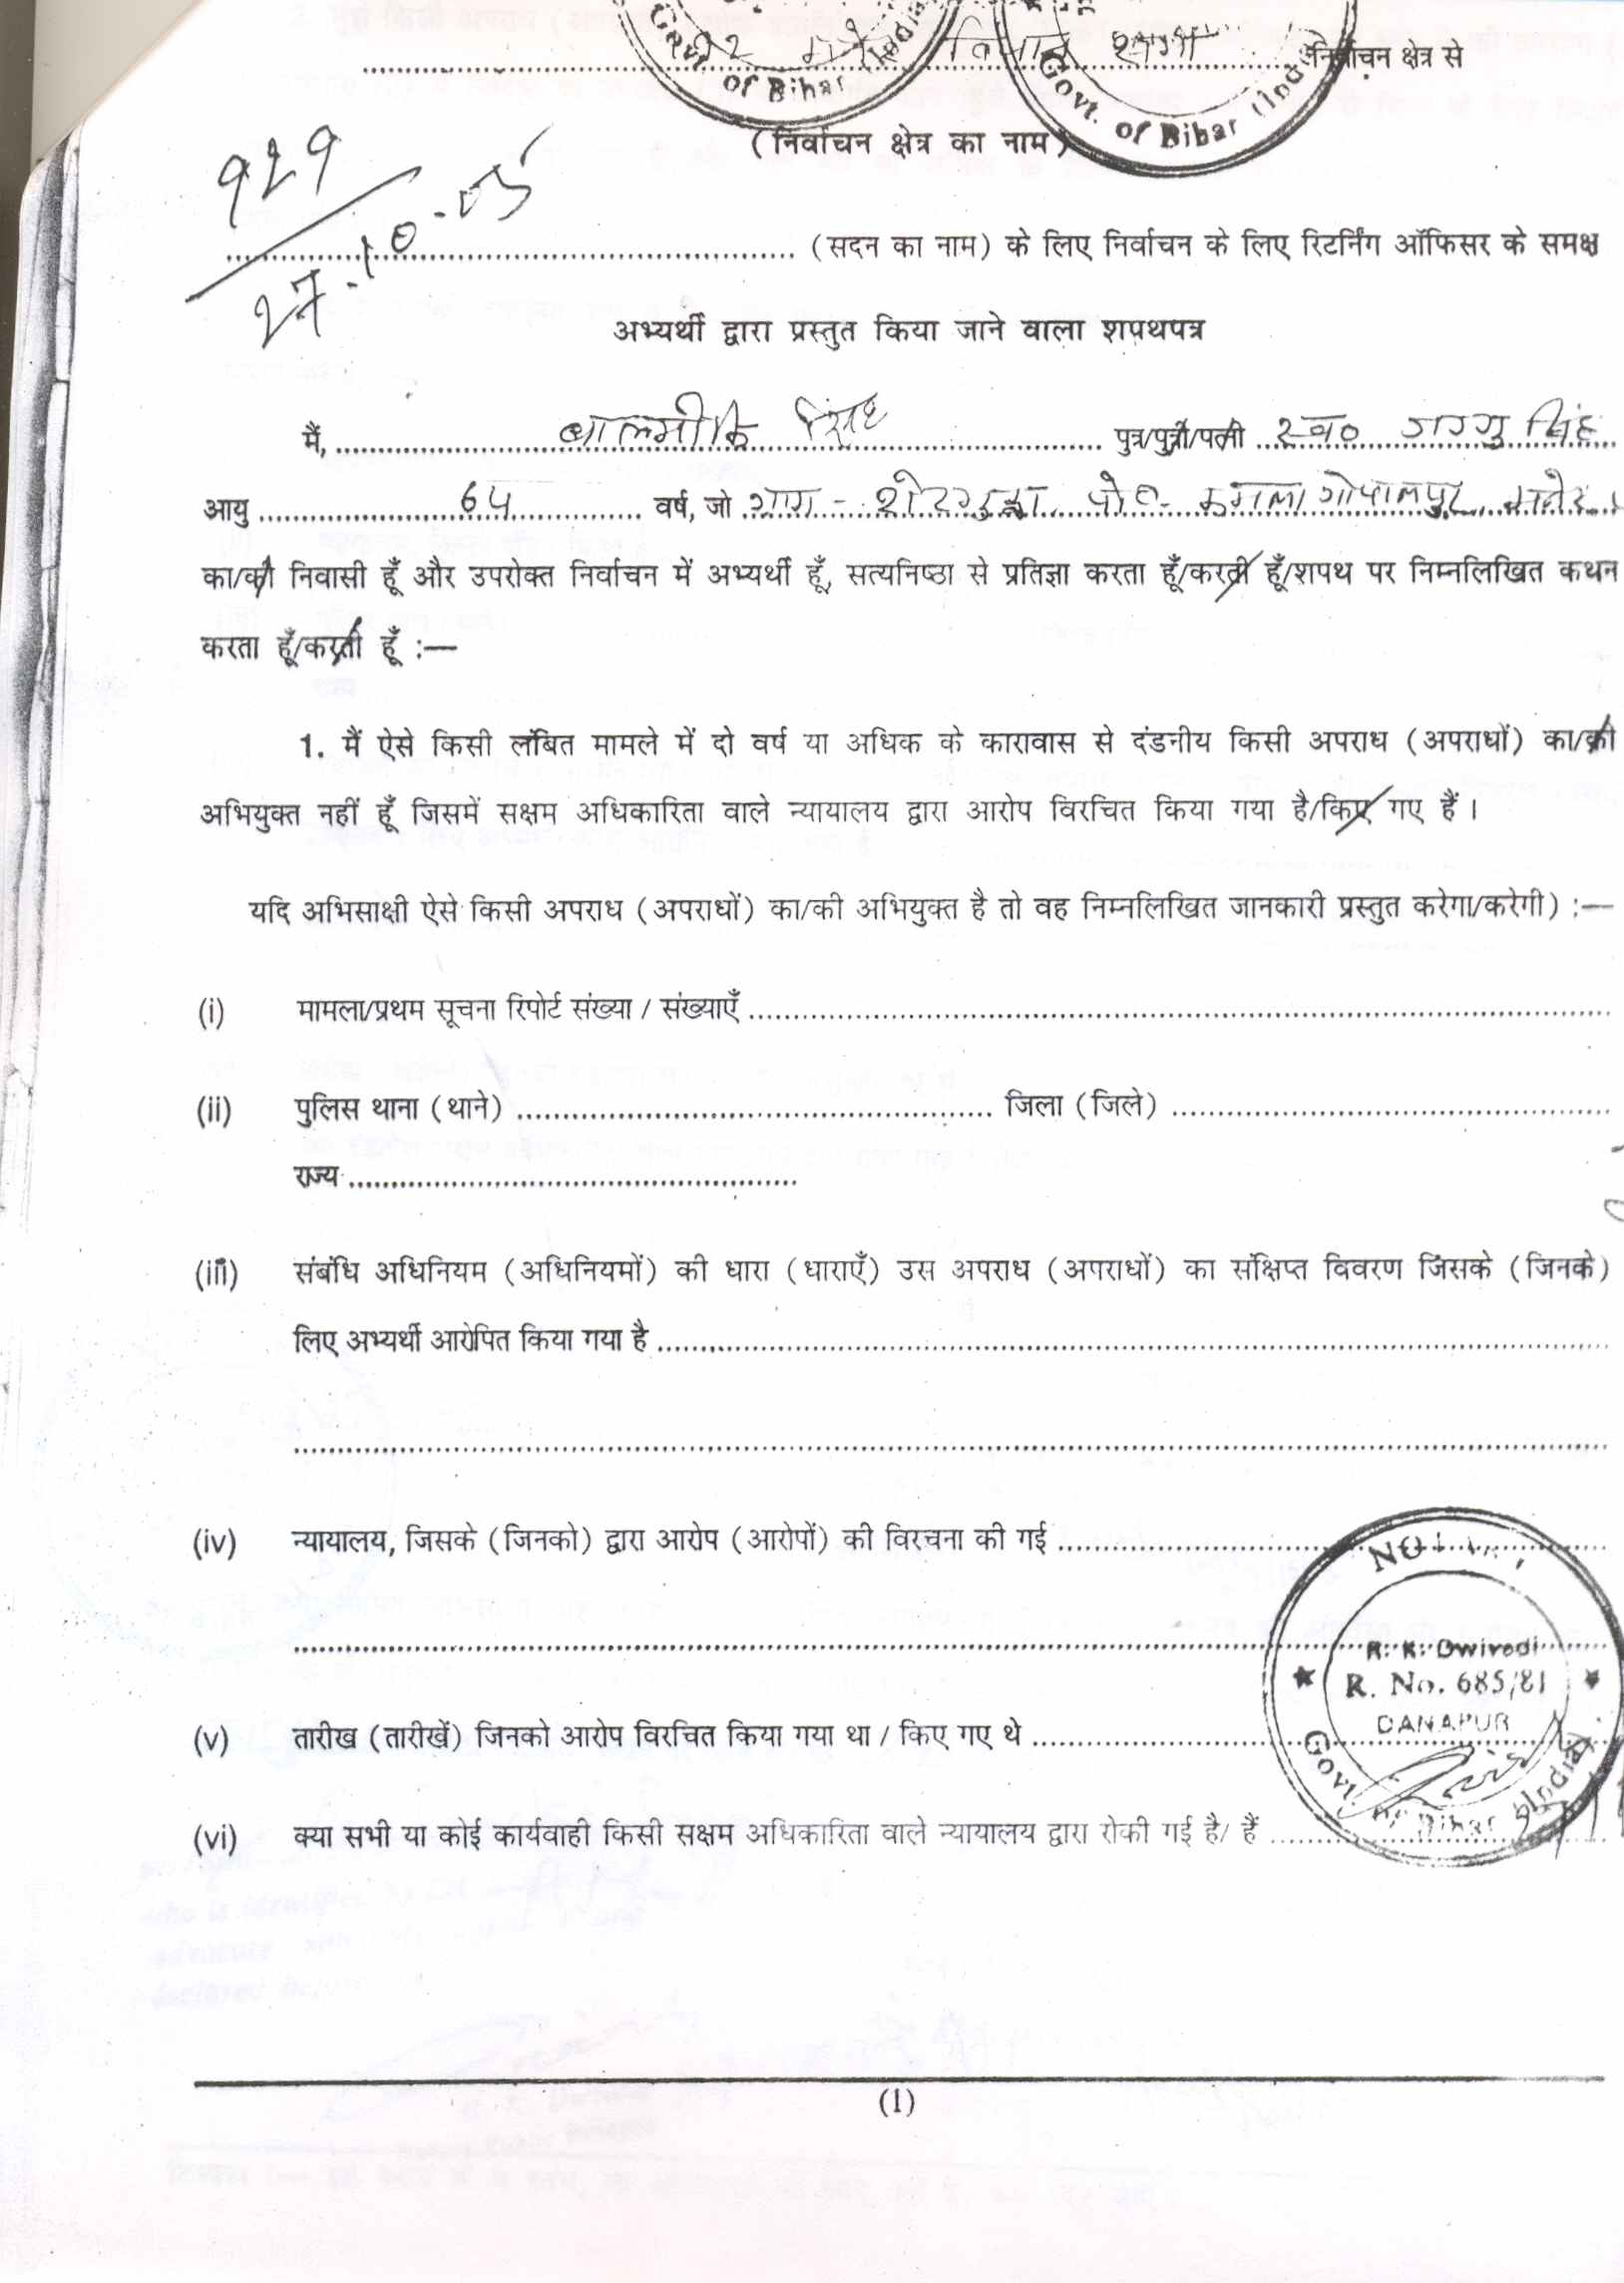 Govt. of Bihar (India
Govt. of Bihar (Ind
विधान सभा निर्वाचन क्षेत्र से
(निर्वाचन क्षेत्र का नाम)
929
27-10-05
(सदन का नाम) के लिए निर्वाचन के लिए रिटर्निंग ऑफिसर के समक्ष
अभ्यर्थी द्वारा प्रस्तुत किया जाने वाला शपथपत्र
मैं, बालमीकि सिंह पुत्र/पुत्री/पत्नी स्व० जग्गु सिंह
आयु 64 वर्ष, जो ग्राम - पो०- कमलागोपालपुर, मनेर
का/की निवासी हूँ और उपरोक्त निर्वाचन में अभ्यर्थी हूँ, सत्यनिष्ठा से प्रतिज्ञा करता हूँ/करती हूँ/शपथ पर निम्नलिखित कथन
करता हूँ/करती हूँ :—
1. मैं ऐसे किसी लंबित मामले में दो वर्ष या अधिक के कारावास से दंडनीय किसी अपराध (अपराधों) का/की
अभियुक्त नहीं हूँ जिसमें सक्षम अधिकारिता वाले न्यायालय द्वारा आरोप विरचित किया गया है/किए गए हैं।
यदि अभिसाक्षी ऐसे किसी अपराध (अपराधों) का/की अभियुक्त है तो वह निम्नलिखित जानकारी प्रस्तुत करेगा/करेगी) :—
(i) मामला/प्रथम सूचना रिपोर्ट संख्या / संख्याएँ
(ii) पुलिस थाना (थाने) जिला (जिले)
राज्य
(iii) संबंधि अधिनियम (अधिनियमों) की धारा (धाराएँ) उस अपराध (अपराधों) का संक्षिप्त विवरण जिसके (जिनके)
लिए अभ्यर्थी आरोपित किया गया है
(iv) न्यायालय, जिसके (जिनको) द्वारा आरोप (आरोपों) की विरचना की गई
R. K. Dwivedi
R. No. 685/81
DANAPUR
Govt. of Bihar (India)
(v) तारीख (तारीखें) जिनको आरोप विरचित किया गया था / किए गए थे
(vi) क्या सभी या कोई कार्यवाही किसी सक्षम अधिकारिता वाले न्यायालय द्वारा रोकी गई है/ हैं
(1)